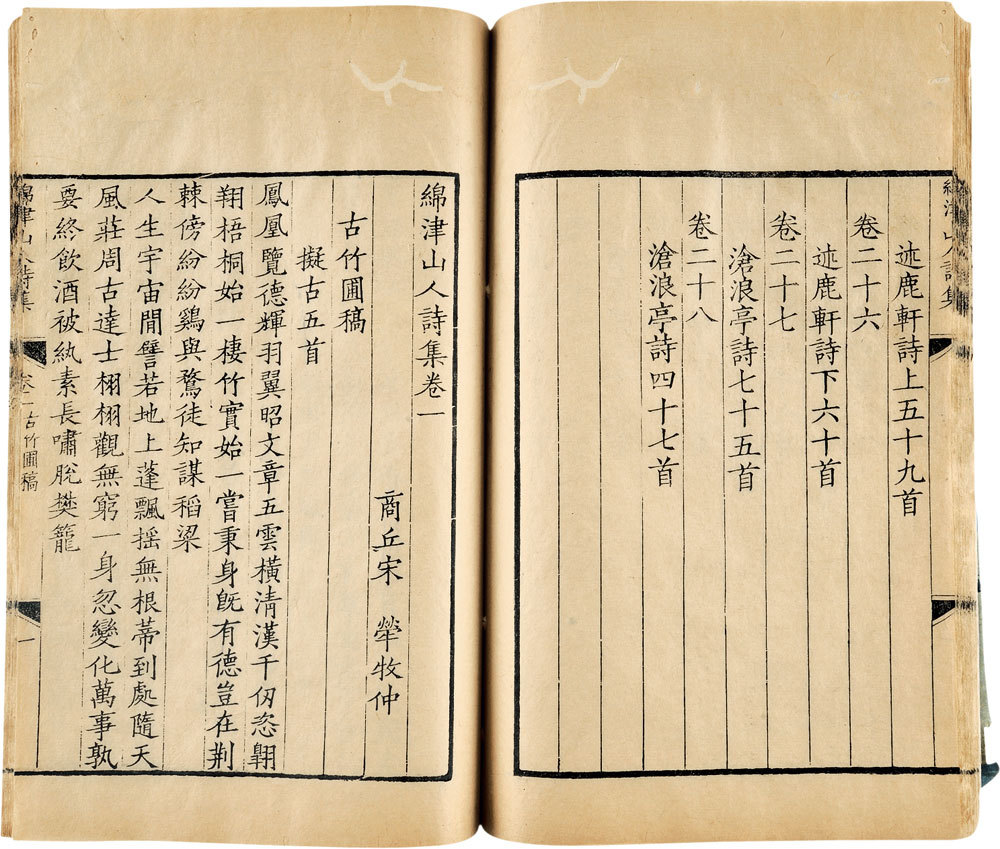 綿津山人詩集
迹鹿軒詩上五十九首
卷二十六
迹鹿軒詩下六十首
卷二十七
滄浪亭詩七十五首
卷二十八
滄浪亭詩四十七首
綿津山人詩集卷一
商丘宋 犖牧仲
古竹圃稿
擬古五首
鳳凰覽德輝羽翼昭文章五雲橫清漢千仞恣翱
翔梧桐始一棲竹實始一嘗秉身既有德豈在荆
棘傍紛紛鷄與鶩徒知謀稻粱
人生宇宙閒譬若地上蓬飄揺無根蒂到處隨天
風莊周古達士栩栩觀無窮一身忽變化萬事孰
要終飲酒被紈素長嘯脫樊籠
綿津山人詩集 卷一古竹圃稿 一